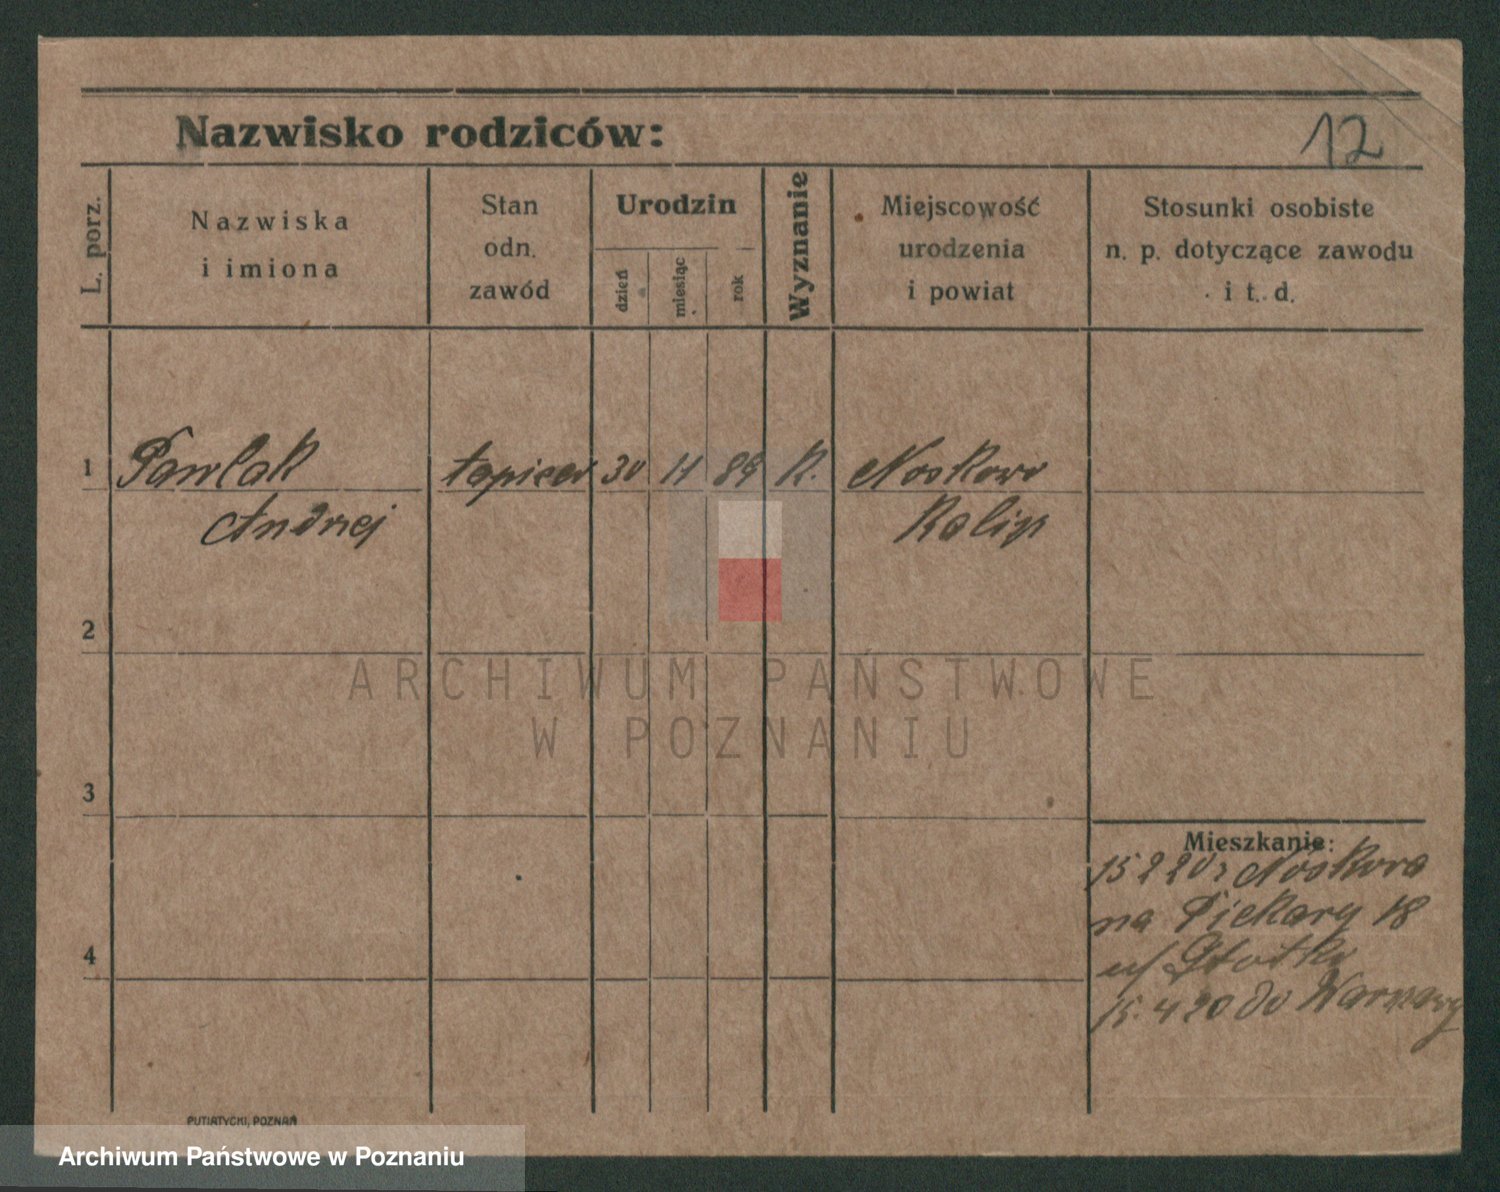 Nazwisko rodziców:
12
L. porz.
Nazwiska
i imiona
Stan
odn.
zawód
Urodzin
dzień
miesiąc
rok
Wyznanie
Miejscowość
urodzenia
i powiat
Stosunki osobiste
n. p. dotyczące zawodu
i t. d.
1
Pawlak
tapicer
30
11
89
K.
Noskowo
Andrzej
Kalisz
2
ARCHIWUM PAŃSTWOWE
W POZNANIU
3
Mieszkanie:
15 2 20 z Noskowa
na Piekary 18
u/
4
15.4 20 do Warszawy
PUTIATYCKI, POZNAŃ
Archiwum Państwowe w Poznaniu